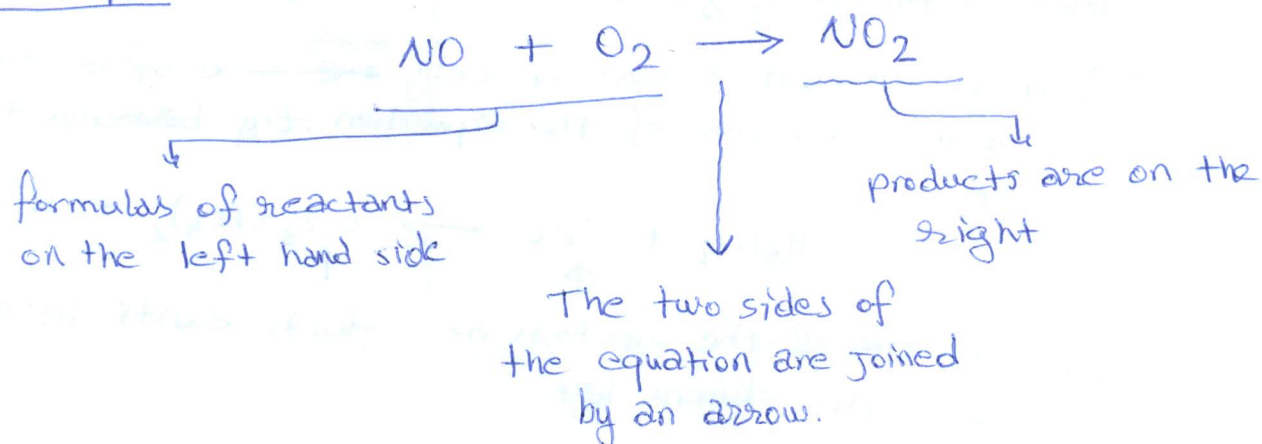 NO + O₂ ⟶ NO₂
formulas of reactants
on the left hand side
products are on the
right
The two sides of
the equation are joined
by an arrow.